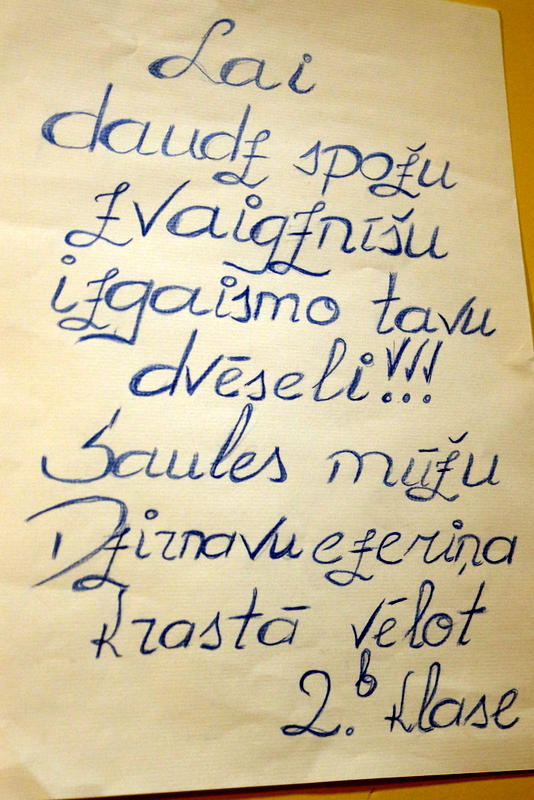 Lai
daudz spožu
zvaigznīšu
izgaismo tavu
dvēseli!!!
Saules mūžu
Dzirnavu ezeriņa
krastā vēlot
2. b klase